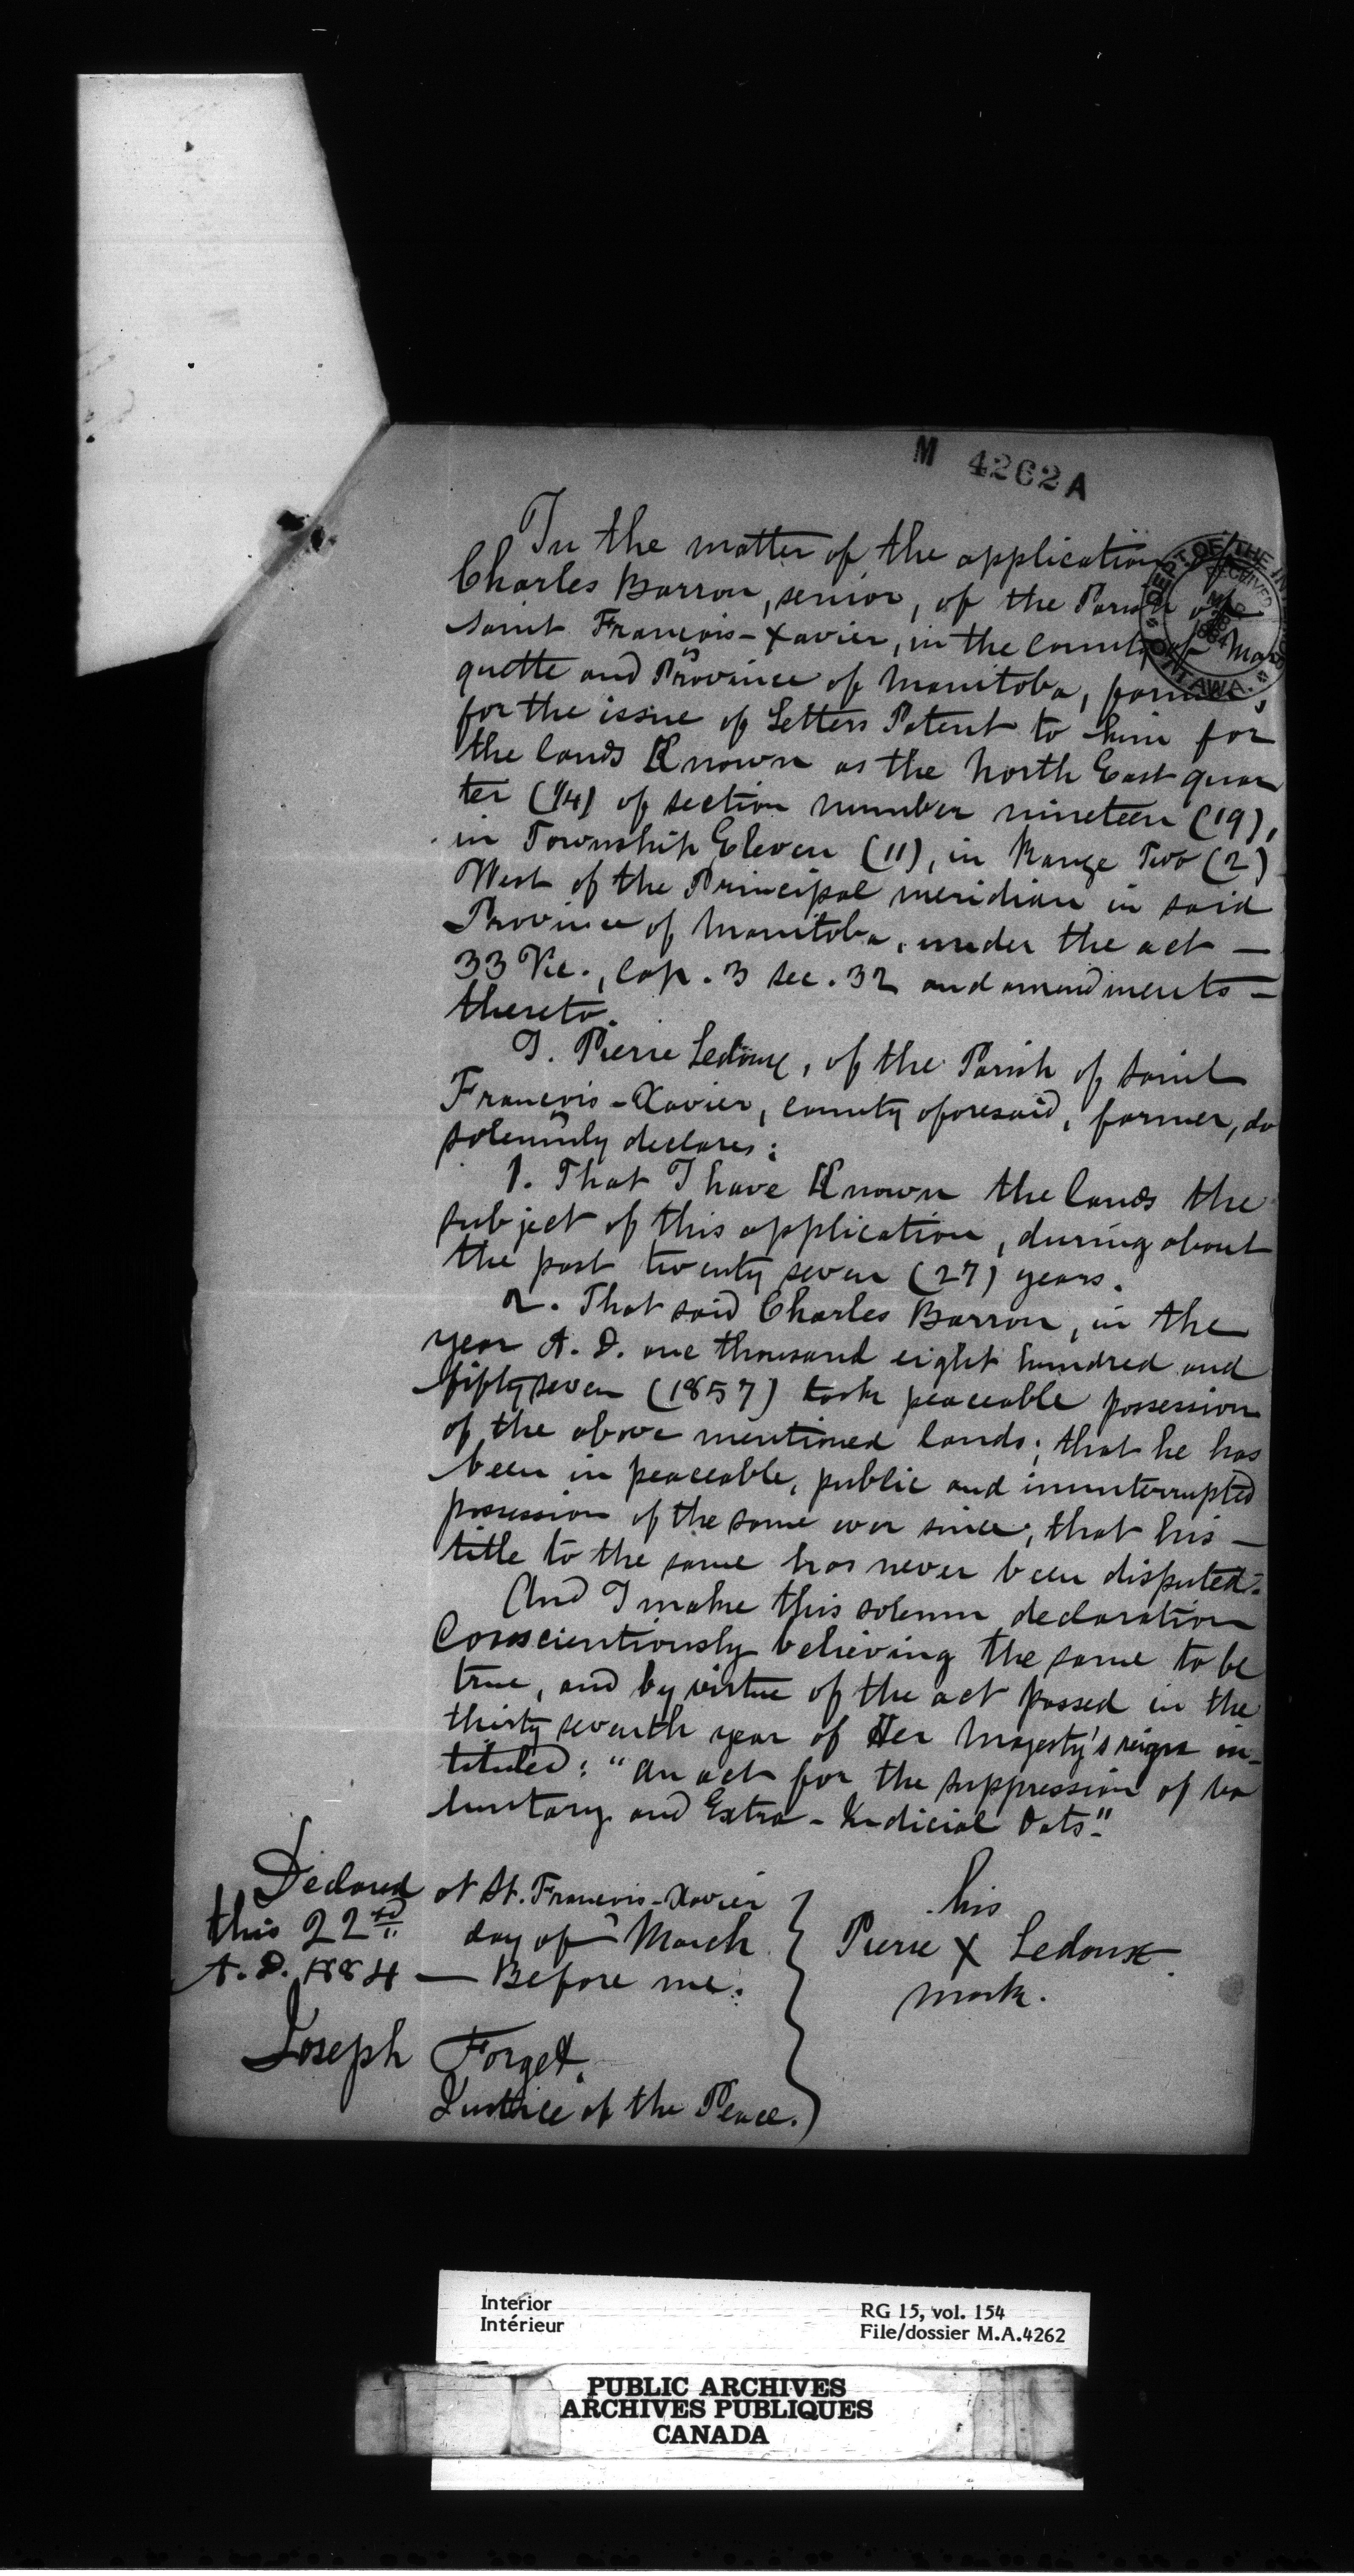 M 4262A
DEPT. OF THE IN
RECEIVED
1884
OTTAWA.
In the matter of the application of
Charles Barron, senior, of the Parish of
Saint François-Xavier, in the County of Mar
quette and Province of Manitoba, farmer,
for the issue of Letters Patent to him for
the lands Known as the North East quar
ter (1/4) of section number nineteen (19),
in Township Eleven (11), in Range Two (2)
West of the Principal meridian in said
Province of Manitoba, under the act —
33 Vic., Cap. 3 sec. 32 and amendments —
thereto.
I. Pierre Ledoux, of the Parish of Saint
François-Xavier, County aforesaid, farmer, do
solemnly declares:
1. That I have Known the lands the
subject of this application, during about
the past twenty seven (27) years.
2. That said Charles Barron, in the
year A. D. one thousand eight hundred and
fifty seven (1857) took peaceable possession
of the above mentioned lands; that he has
been in peaceable, public and inunterrupted
possession of the same ever since; that his —
title to the same has never been disputed.
And I make this solemn declaration
Conscientiously believing the same to be
true, and by virtue of the act passed in the
thirty seventh year of Her Majesty's reign in-
tituled: "An act for the suppression of vo
luntary and Extra-Judicial Oats".
Declared at St. François-Xavier
this 22nd day of March
A. D. 1884 — Before me.
Joseph Forget.
Justice of the Peace.
his
Pierre X Ledoux
mark.
Interior
Intérieur
RG 15, vol. 154
File/dossier M.A.4262
PUBLIC ARCHIVES
ARCHIVES PUBLIQUES
CANADA